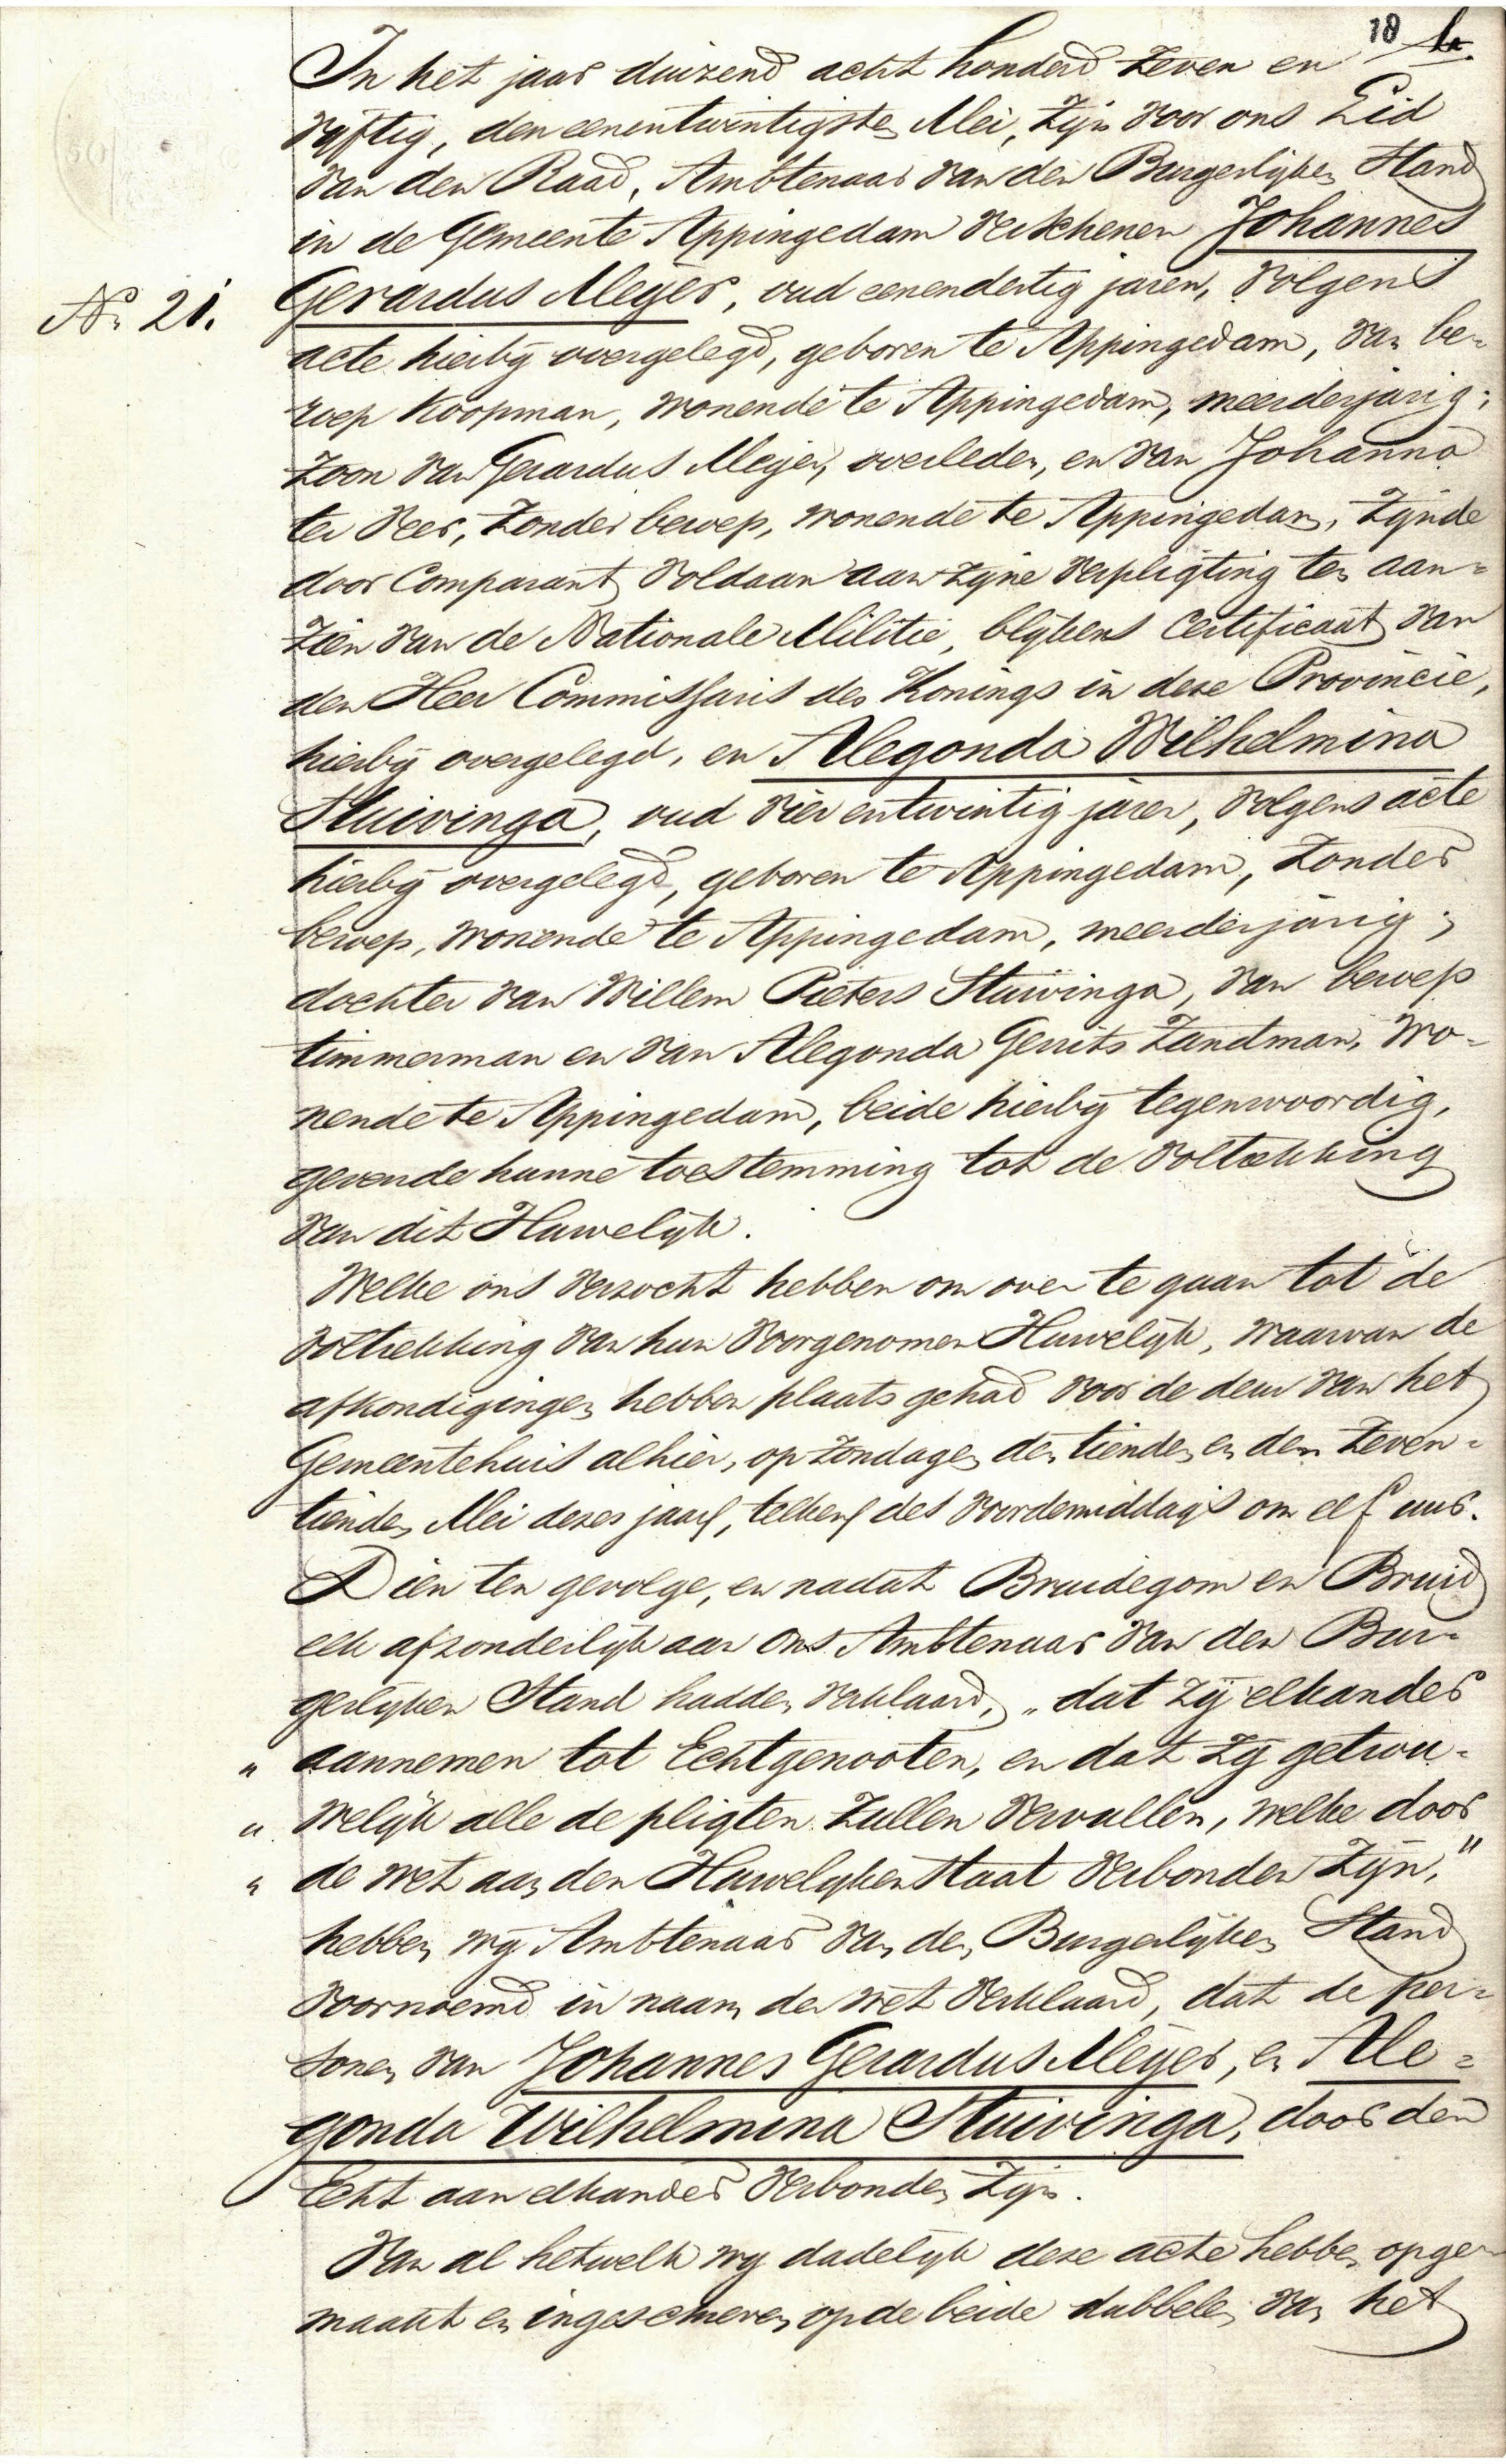 18
In het jaar duizend acht honderd zeven en
vyftig, den eenentwintigsten Mei, zyn voor ons Lid
van den Raad, Ambtenaar van den Burgerlyken Stand
in de Gemeente Appingedam verschenen Johannes
No. 21. Gerardus Meijer, oud eenendertig jaren, volgens
acte hierbij overgelegd, geboren te Appingedam, van be-
roep Koopman, wonende te Appingedam, meerderjarig;
zoon van Gerardus Meijer, overleden, en van Johanna
ter Veer, zonder beroep, wonende te Appingedam, zynde
door Comparant voldaan aan zyne verpligting ten aan-
zien van de Nationale Militie, blykens certificaat van
den Heer Commissaris des Konings in deze Provincie,
hierbij overgelegd, en Alegonda Wilhelmina
Stuivinga, oud vier entwintig jaren, volgens acte
hierbij overgelegd, geboren te Appingedam, zonder
beroep, wonende te Appingedam, meerderjarig;
dochter van Willem Pieters Stuivinga, van beroep
timmerman en van Alegonda Gerrits Zandman, wo-
nende te Appingedam, beide hierbij tegenwoordig,
gevende hunne toestemming tot de voltrekking
van dit Huwelyk.
Welke ons verzocht hebben om over te gaan tot de
voltrekking van hun voorgenomen Huwelyk, waarvan de
afkondigingen hebben plaats gehad voor de deur van het
Gemeentehuis alhier, op zondagen den tienden en den zeven-
tienden Mei dezes jaars, telkens des voordemiddags om elf uur.
Dien ten gevolge, en nadat Bruidegom en Bruid
elk afzonderlyk aan ons Ambtenaar van den Bur-
gerlyken Stand hadden verklaard, „dat zij elkander
„ aannemen tot Echtgenooten, en dat zij getrou-
„ welyk alle de pligten zullen vervullen, welke door
„ de wet aan den Huwelyken Staat verbonden zyn,"
hebben wy Ambtenaar van den Burgerlyken Stand
voornoemd in naam der wet verklaard, dat de per-
sonen van Johannes Gerardus Meijer, en Ale-
gonda Wilhelmina Stuivinga, door den
Echt aan elkander verbonden zyn.
Van al hetwelk wy dadelyk deze acte hebben opge-
maakt en ingeschreven op de beide dubbelen van het